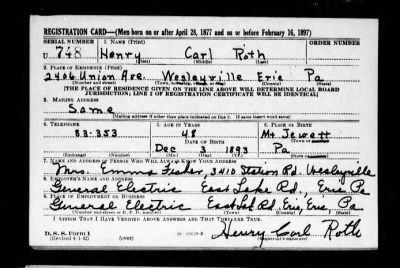 REGISTRATION CARD—(Men born on or after April 28, 1877 and on or before February 16, 1897)
SERIAL NUMBER 1. NAME (Print) ORDER NUMBER
U 748 Henry Carl Roth
(First) (Middle) (Last)
2. PLACE OF RESIDENCE (Print)
2406 Union Ave. Wesleyville Erie Pa
(Number and street) (Town, township, village, or city) (County) (State)
[THE PLACE OF RESIDENCE GIVEN ON THE LINE ABOVE WILL DETERMINE LOCAL BOARD
JURISDICTION; LINE 2 OF REGISTRATION CERTIFICATE WILL BE IDENTICAL]
3. MAILING ADDRESS
Same
[Mailing address if other than place indicated on line 2. If same insert word same]
4. TELEPHONE 5. AGE IN YEARS 6. PLACE OF BIRTH
83-353 48 Mt Jewett
DATE OF BIRTH (Town or county)
Dec 3 1893 Pa
(Exchange) (Number) (Mo.) (Day) (Yr.) (State or country)
7. NAME AND ADDRESS OF PERSON WHO WILL ALWAYS KNOW YOUR ADDRESS
Mrs. Emma Fisher, 3410 Station Rd. Wesleyville
8. EMPLOYER'S NAME AND ADDRESS
General Electric East Lake Rd., Erie Pa
9. PLACE OF EMPLOYMENT OR BUSINESS
General Electric East Lk Rd. Erie, Erie, Pa
(Number and street or R. F. D. number) (Town) (County) (State)
I AFFIRM THAT I HAVE VERIFIED ABOVE ANSWERS AND THAT THEY ARE TRUE.
D. S. S. FORM 1
(Revised 4-1-42) (over) Henry Carl Roth
(Registrant's signature)